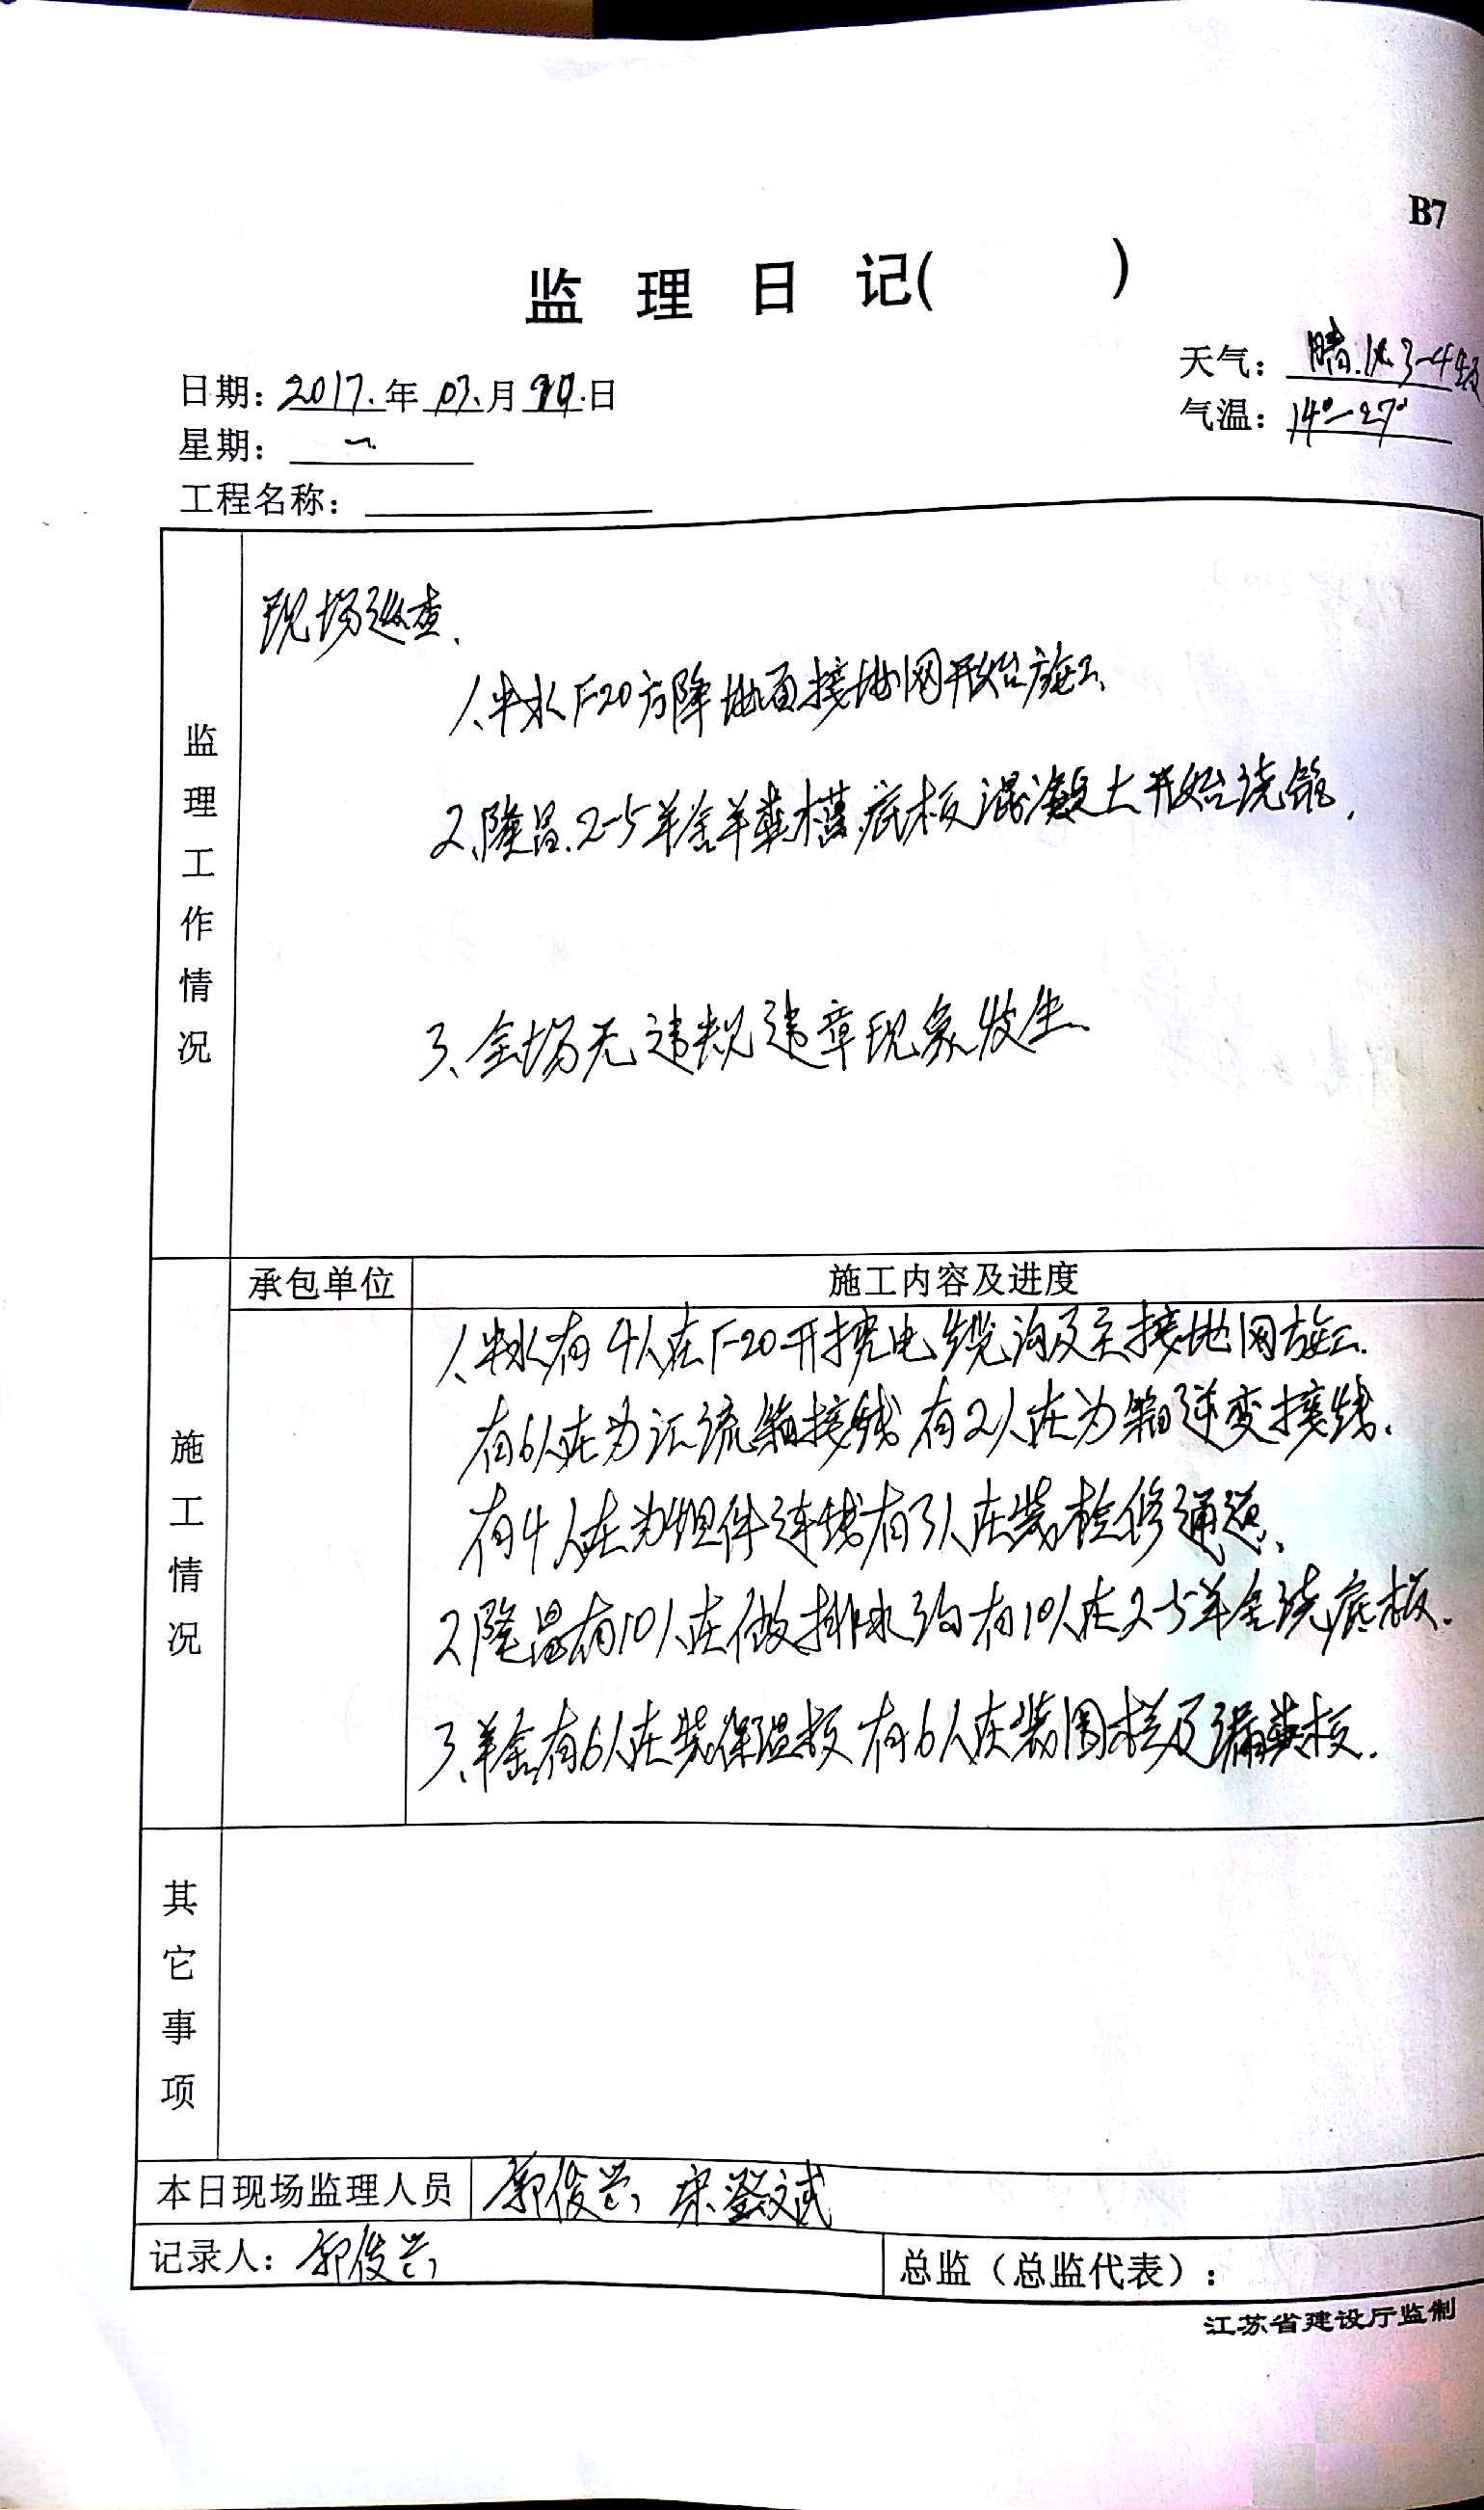 B7
监 理 日 记( )
日期: 2017. 年 03. 月 日
天气: 晴.风3-4级
气温: 14°-27°
星期: 一.
工程名称:
监理工作情况
现场巡查、
1、中水F-20方降地面接地网开始施工、
2、隆昌、2-5羊舍羊粪槽底板混凝土开始浇筑.
3、全场无违规违章现象发生、
承包单位
施工内容及进度
施工情况
1、中水有4人在F-20开挖电缆沟及主接地网施工.
有6人在为汇流箱接线 有2人在为箱逆变接线.
有4人在为组件连线 有3人在装检修通道、
2、隆昌有10人在做排水沟 有10人在2-5羊舍浇底板.
3、羊舍有6人在装保温板 有6人在装围栏及漏粪板.
其它事项
本日现场监理人员 郭俊兰, 宋 文斌
记录人: 郭俊兰,
总监（总监代表）:
江苏省建设厅监制